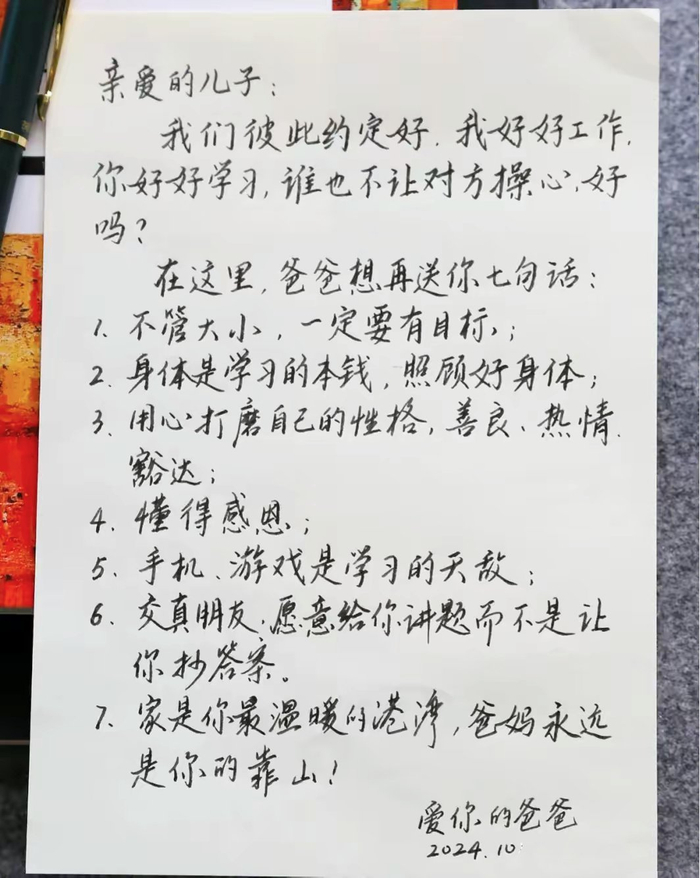 亲爱的儿子：
我们彼此约定好，我好好工作，
你好好学习，谁也不让对方操心，好
吗？
在这里，爸爸想再送你七句话：
1、不管大小，一定要有目标；
2、身体是学习的本钱，照顾好身体；
3、用心打磨自己的性格，善良、热情、
豁达；
4、懂得感恩；
5、手机、游戏是学习的天敌；
6、交真朋友，愿意给你讲题而不是让
你抄答案。
7、家是你最温暖的港湾，爸妈永远
是你的靠山！
爱你的爸爸
2024.10